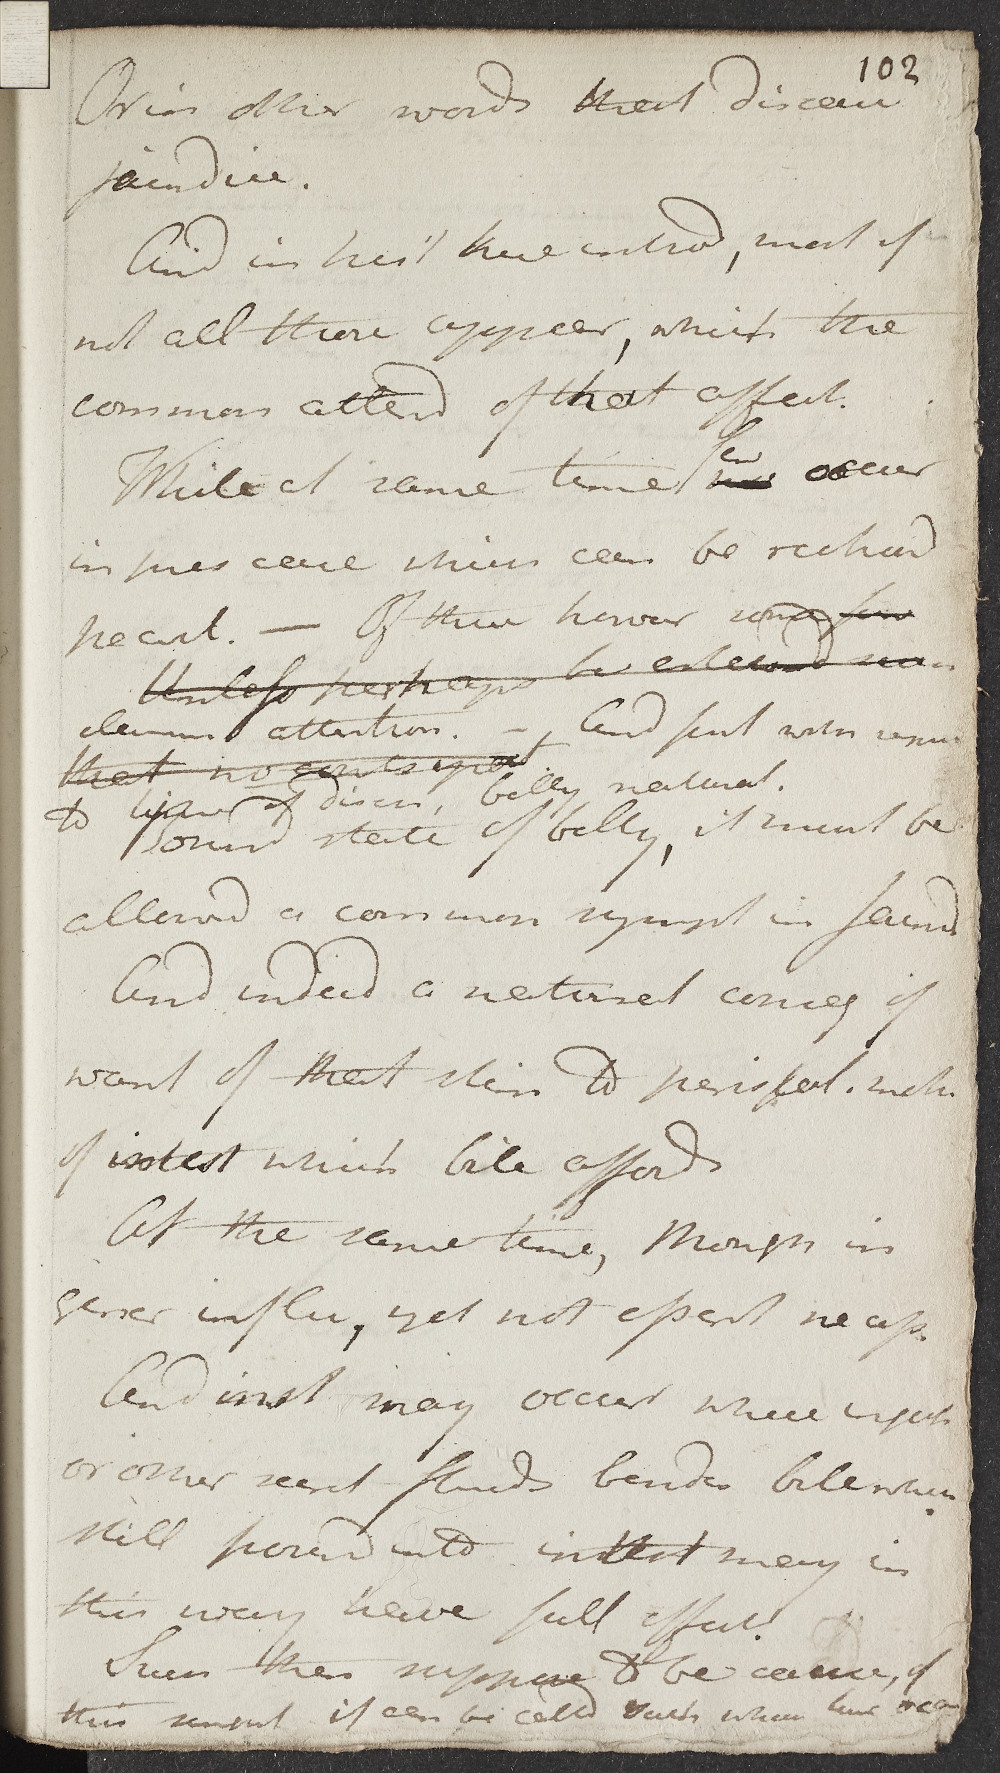 102
Or in other words that disease
jaundice.
And in hist here introd, most if
not all those appear, which the
common attend of that affect.
While at same time few occur
in pres case which can be reckond
pecul. — Of these however some few
Unless perhaps be extend
attention. — And first with
that no
to of diseas, belly natural.
Sound state of belly, it must be
allowd a common sympt in Jaund
And indeed a natural conseq of
want of that stim to peristal. moti
of intest which bile affords
At the same time, though in
gener influ, yet not essent necess.
And inst may occur where
or other secret fluids besides bile when
still pourd into intest may in
this way have full effect.
Such then suppose to be cause, of
this sympt if can be calld such when here occur